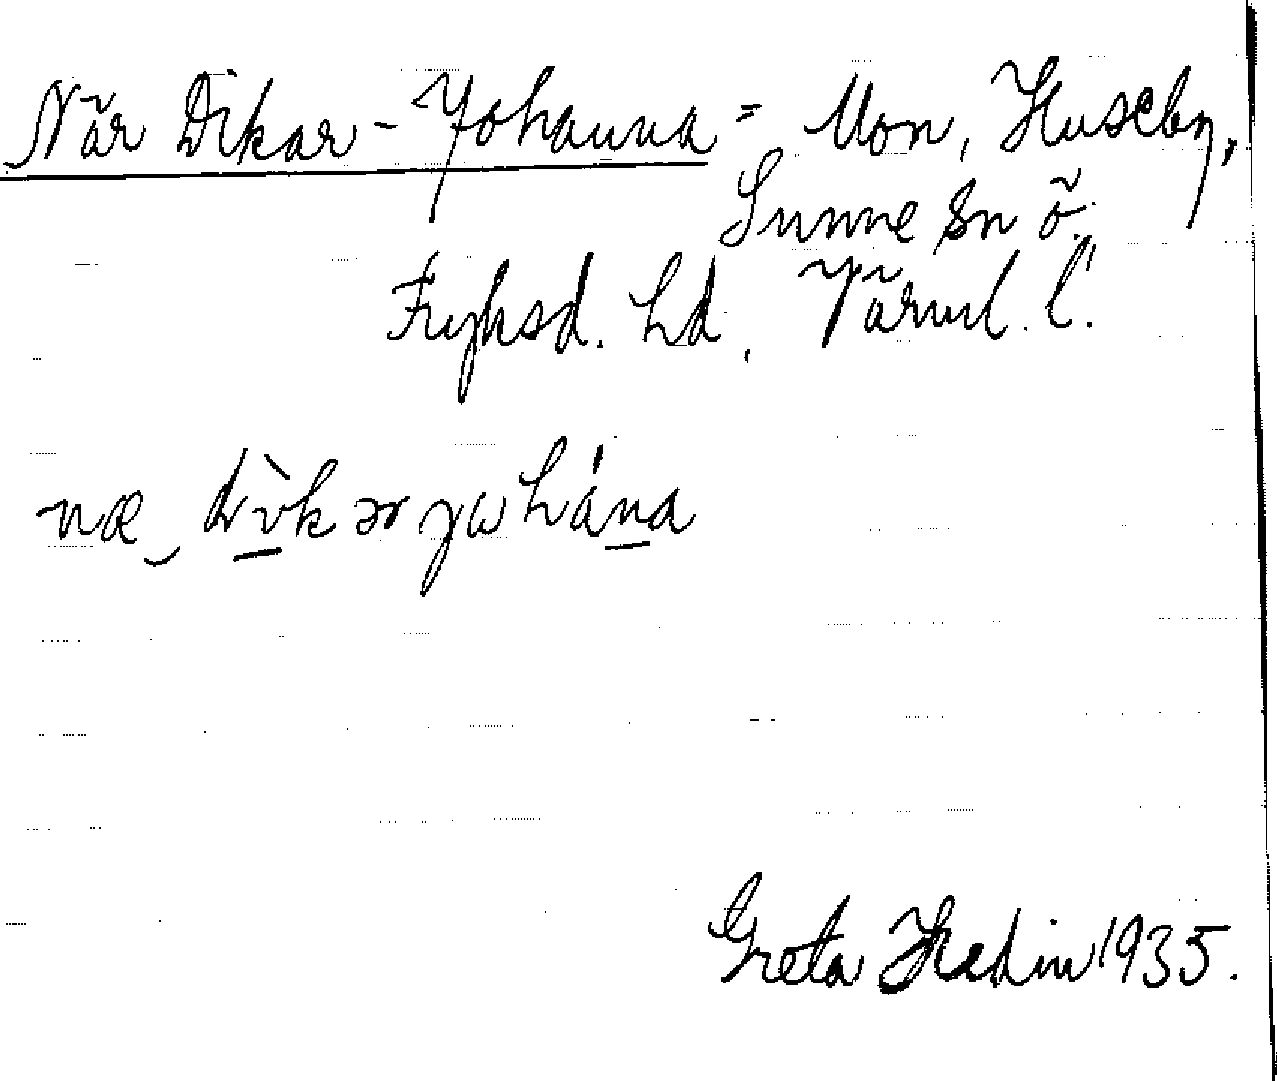 När Dikar-Johanna = Mon, Huseby,
Sunne sn ö.
Fryksd. hd, Värml. l.
Greta Hedin 1935.